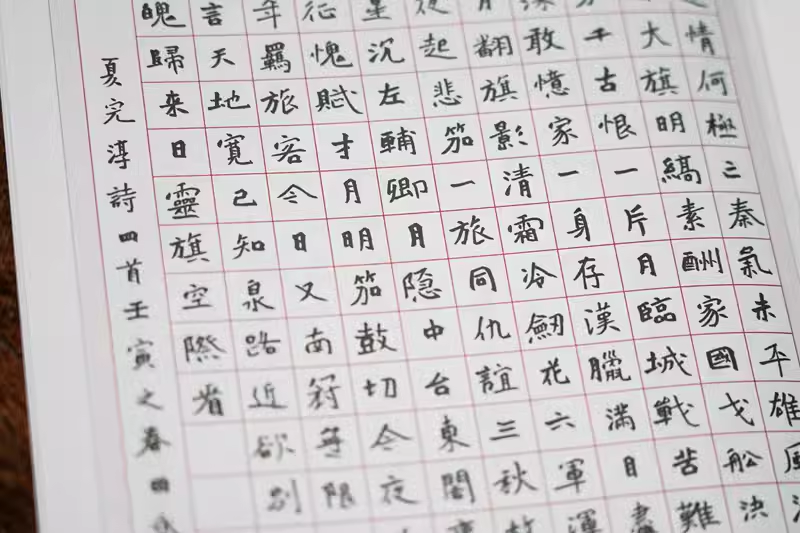 情何極三秦氣未平雄風
大旗明縞素酬家國戈船決
千古恨一片月臨城戰苦難
深敢憶家一身存漢臘滿目
月翻旗影清霜冷劒花六軍渾
夜起悲笳一旅同仇誼三秋故
星沉左輔卿月隐中台東閣
征愧賦才月明笳鼓切今夜
年羈旅客今日又南冠無限
言天地寬已知泉路近欲別
魄歸來日靈旗空際看
夏完淳詩四首壬寅之春四